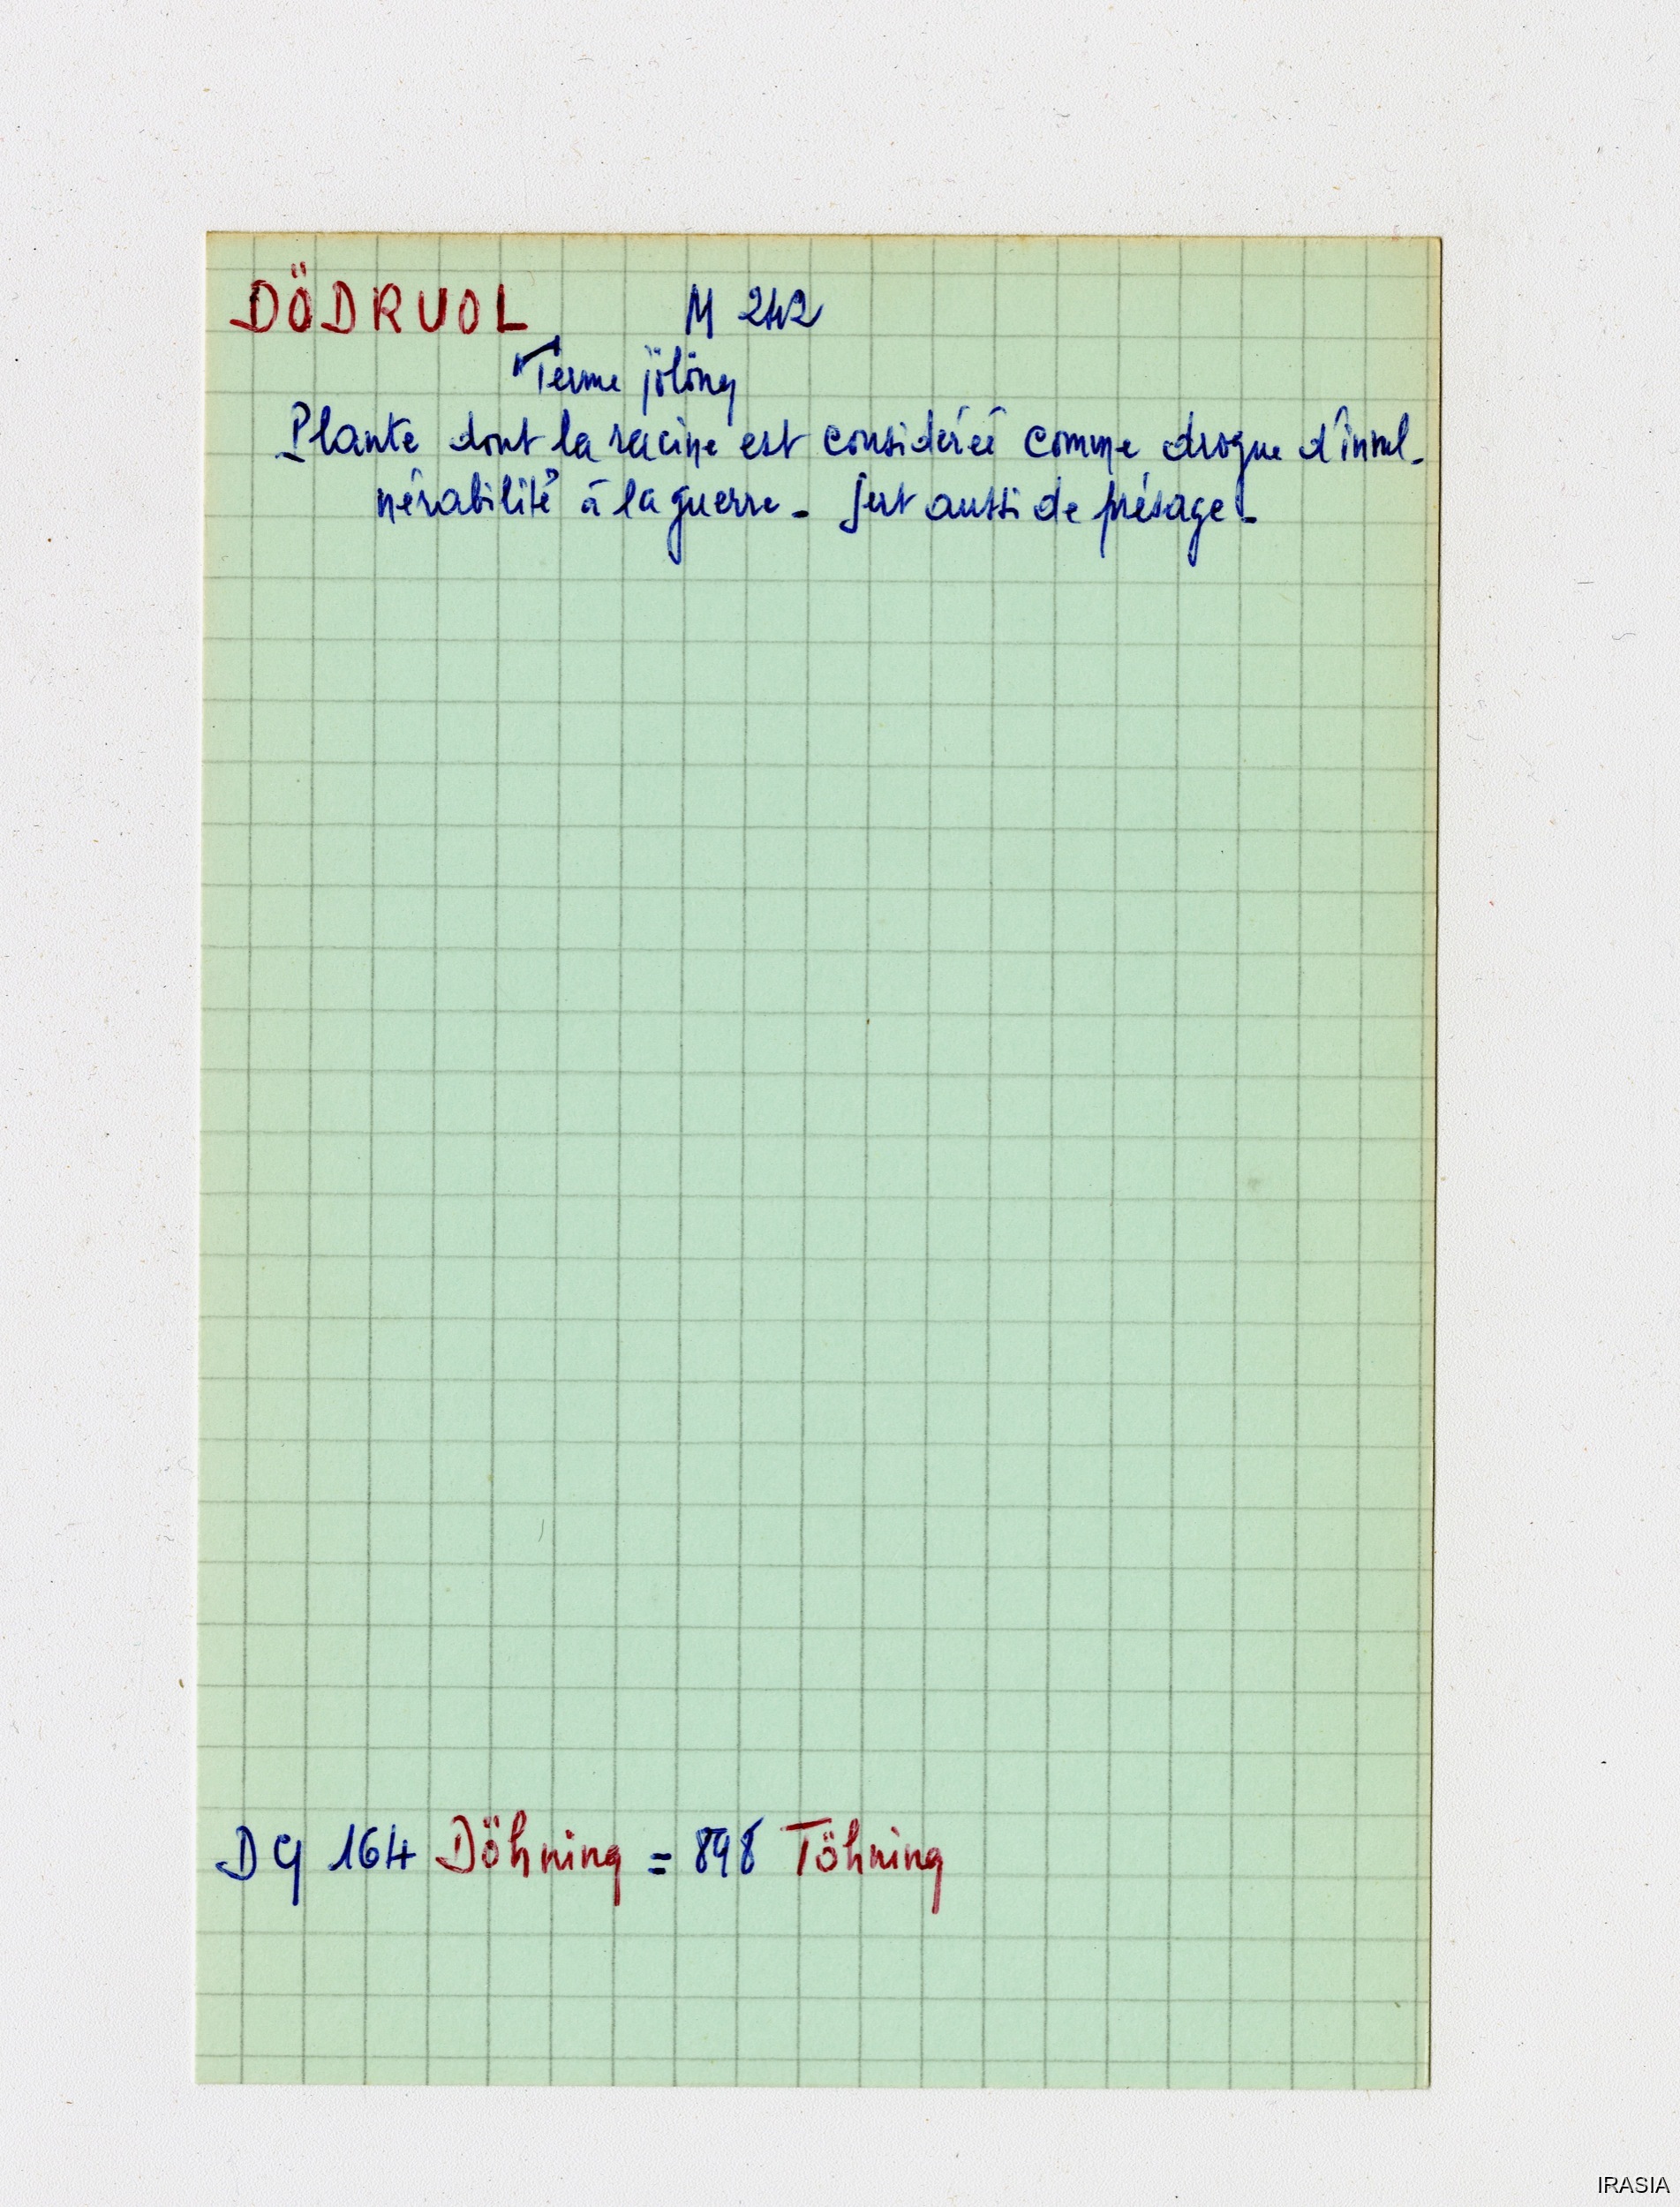 DÖDRUOL M 242
Terme jölöng
Plante dont la racine est considérée comme drogue d'invul-
nérabilité à la guerre - Sert aussi de présage -
DG 164 Döhning = 898 Töhning
IRASIA